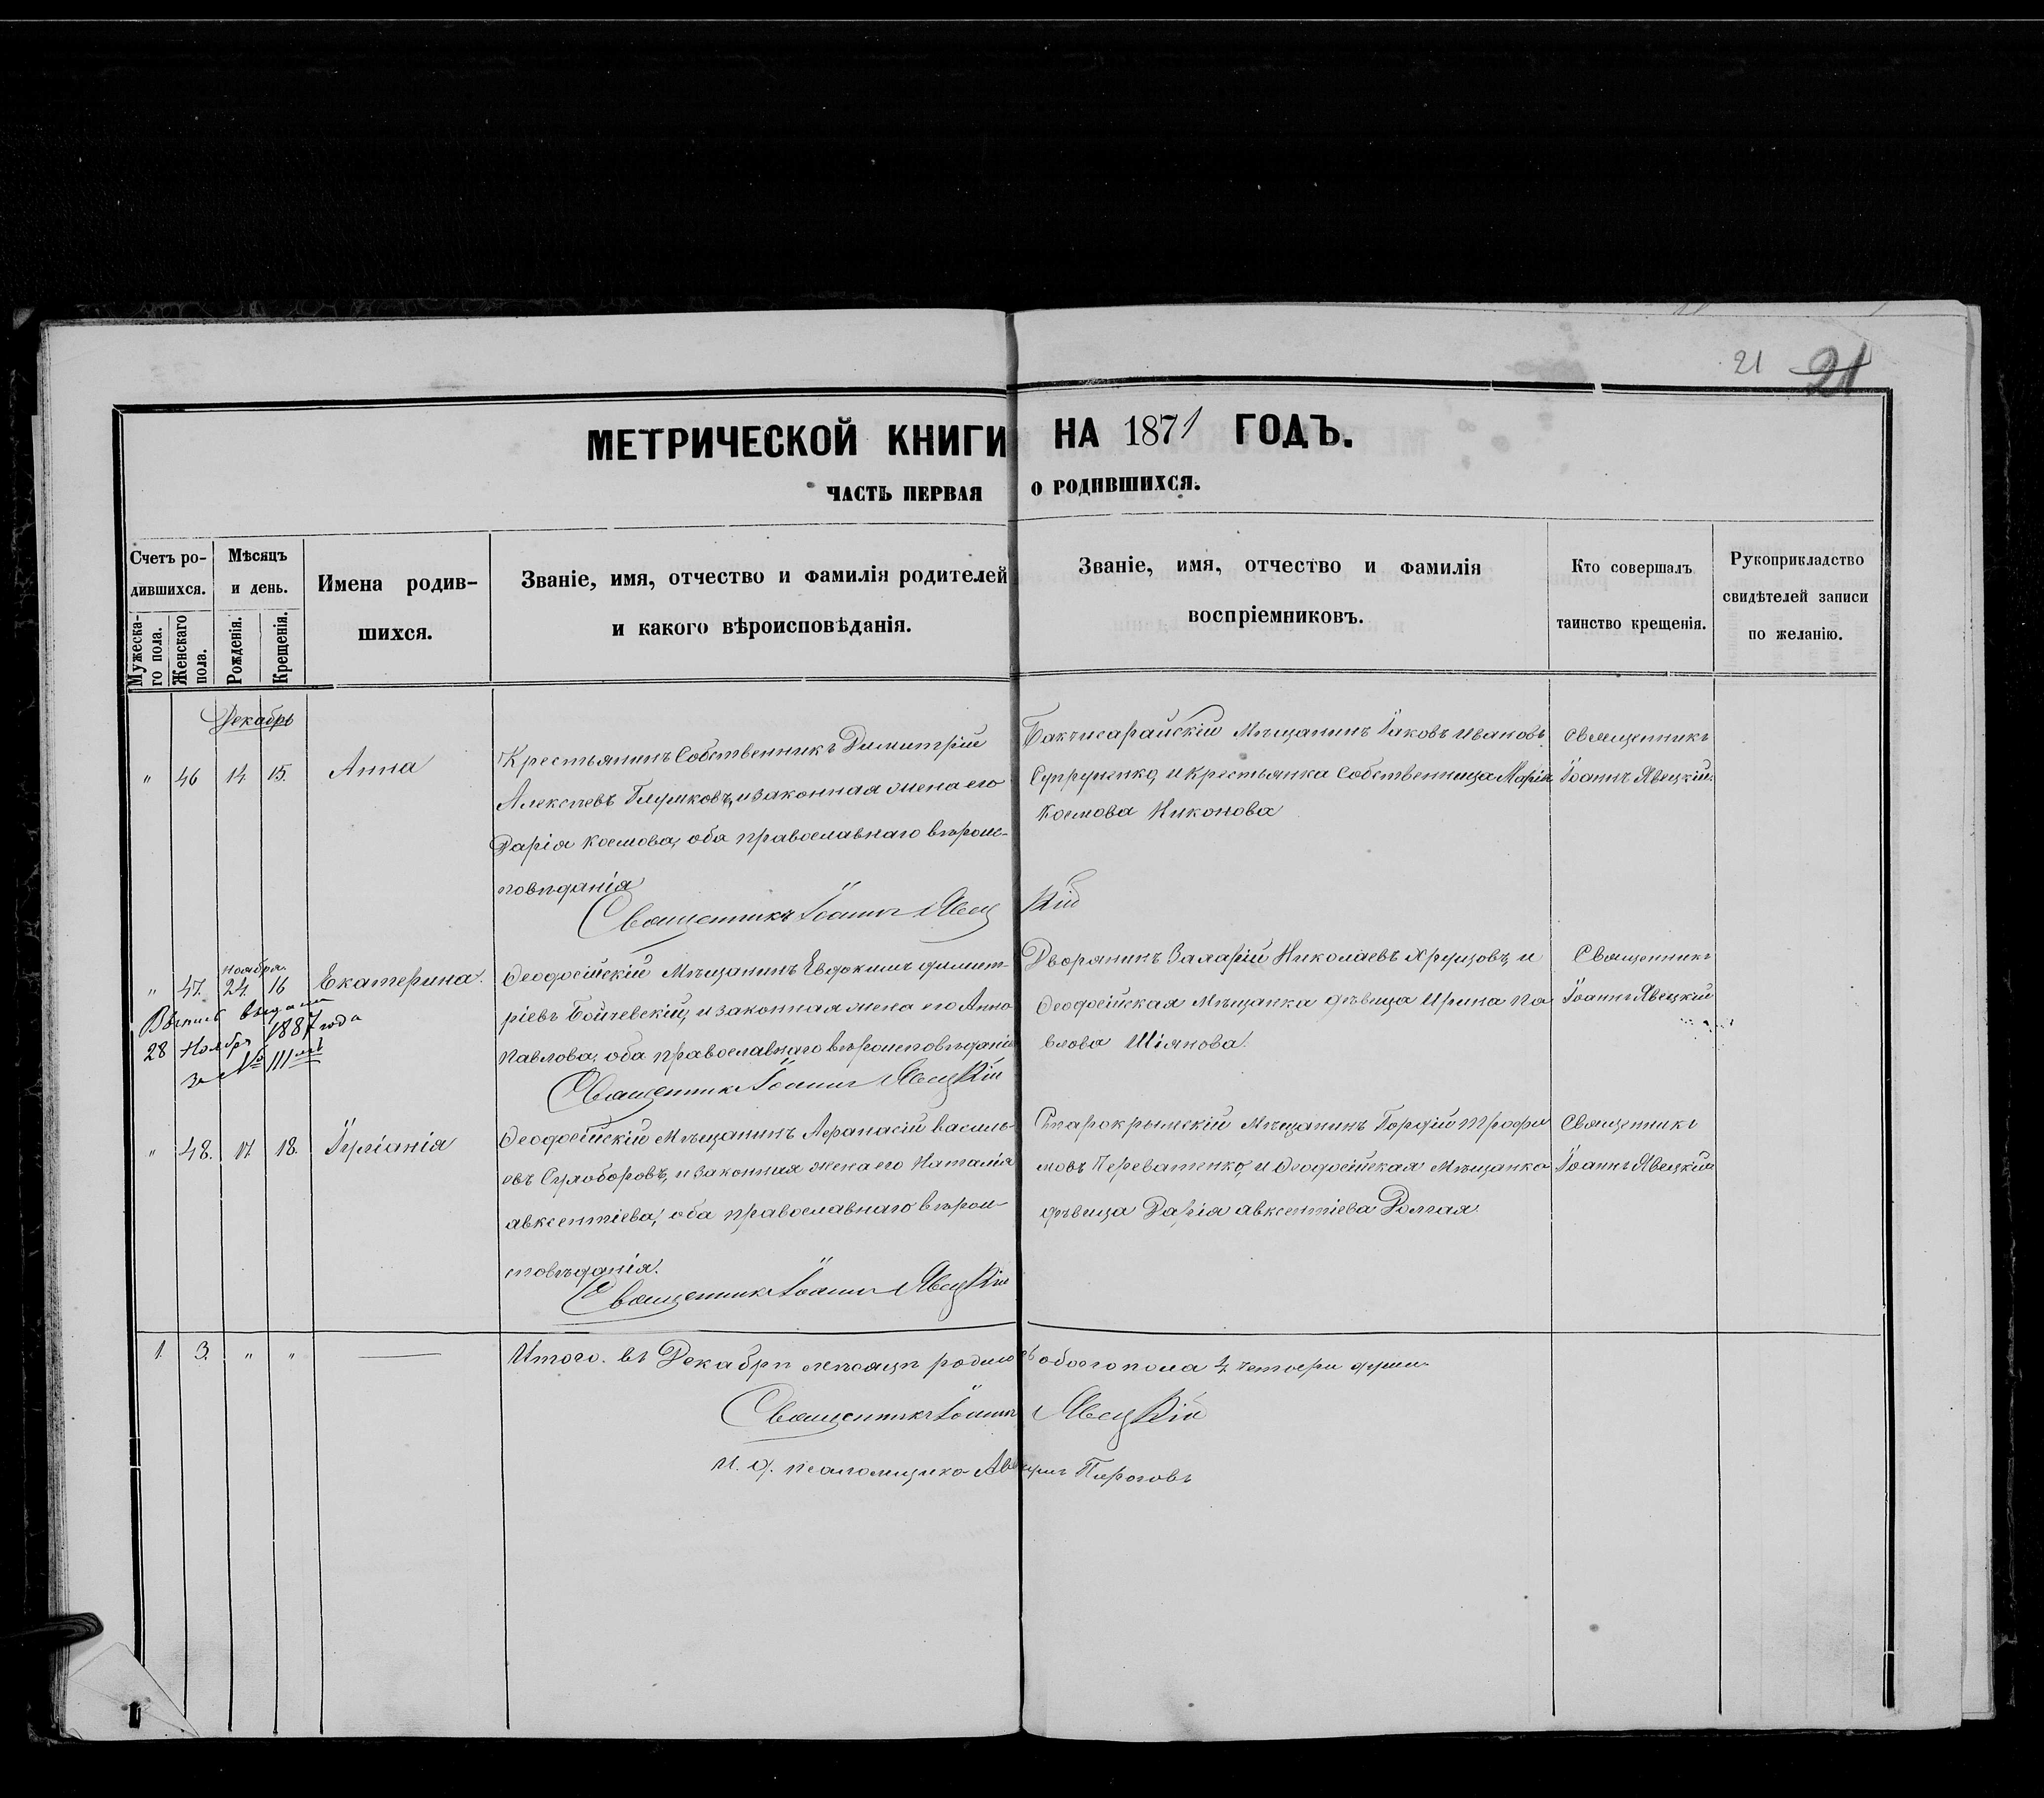 21 21
МЕТРИЧЕСКОЙ КНИГИ НА 1871 ГОДЪ.
ЧАСТЬ ПЕРВАЯ О РОДИВШИХСЯ.
Счетъ ро-
дившихся.
Мужеска-
го пола.
Женскаго
пола.
Мѣсяцъ
и день.
Рожденія.
Крещенія.
Имена родив-
шихся.
Званіе, имя, отчество и фамилія родителей
и какого вѣроисповѣданія.
Званіе, имя, отчество и фамилія
воспріемниковъ.
Кто совершалъ
таинство крещенія.
Рукоприкладство
свидѣтелей записи
по желанію.
Декабрь
" 46 14 15. Анна
Крестьянинъ Собственникъ Димитрій
Алексѣевъ и законная жена его
Дарія Космова, оба православнаго вѣроис-
повѣданія
Бакчисарайскій Мѣщанинъ Іаковъ Ивановъ
Супруненко, и Крестьянка Собственница Марія
Космова Никонова
Священникъ
Іоаннъ Явецкій.
Священникъ Іоаннъ Явецкій
Ноября
" 47. 24. 16 Екатерина.
выдана
28 Ноября 1887 года
за № 111
Ѳеодосійскій Мѣщанинъ Евдокимъ Димит-
ріевъ Бойчевскій, и законная жена его Анна
Павлова, оба православнаго вѣроисповѣданія
Дворянинъ Николаевъ Хрущовъ, и
Ѳеодосійская Мѣщанка дѣвица Ирина Па
влова Шіянова.
Священникъ
Іоаннъ Явецкій
Священникъ Іоаннъ Явецкій
" 48. 17. 18. Іуліанія
Ѳеодосійскій Мѣщанинъ Аѳанасій Василь-
евъ и законная жена его Наталія
Авксентіева, оба православнаго вѣрои-
сповѣданія.
Старокрымскій Мѣщанинъ Гордій Трофи
мовъ Переватенко, и Ѳеодосійская Мѣщанка
дѣвица Дарія Авксентіева Долгая
Священникъ
Іоаннъ Явецкій
Священникъ Іоаннъ Явецкій
1. 3. " "
Итого. въ Декабрѣ мѣсяцѣ родилось обоего пола 4 четверы души.
Священникъ Іоаннъ Явецкій
И. д. псаломщика Пироговъ